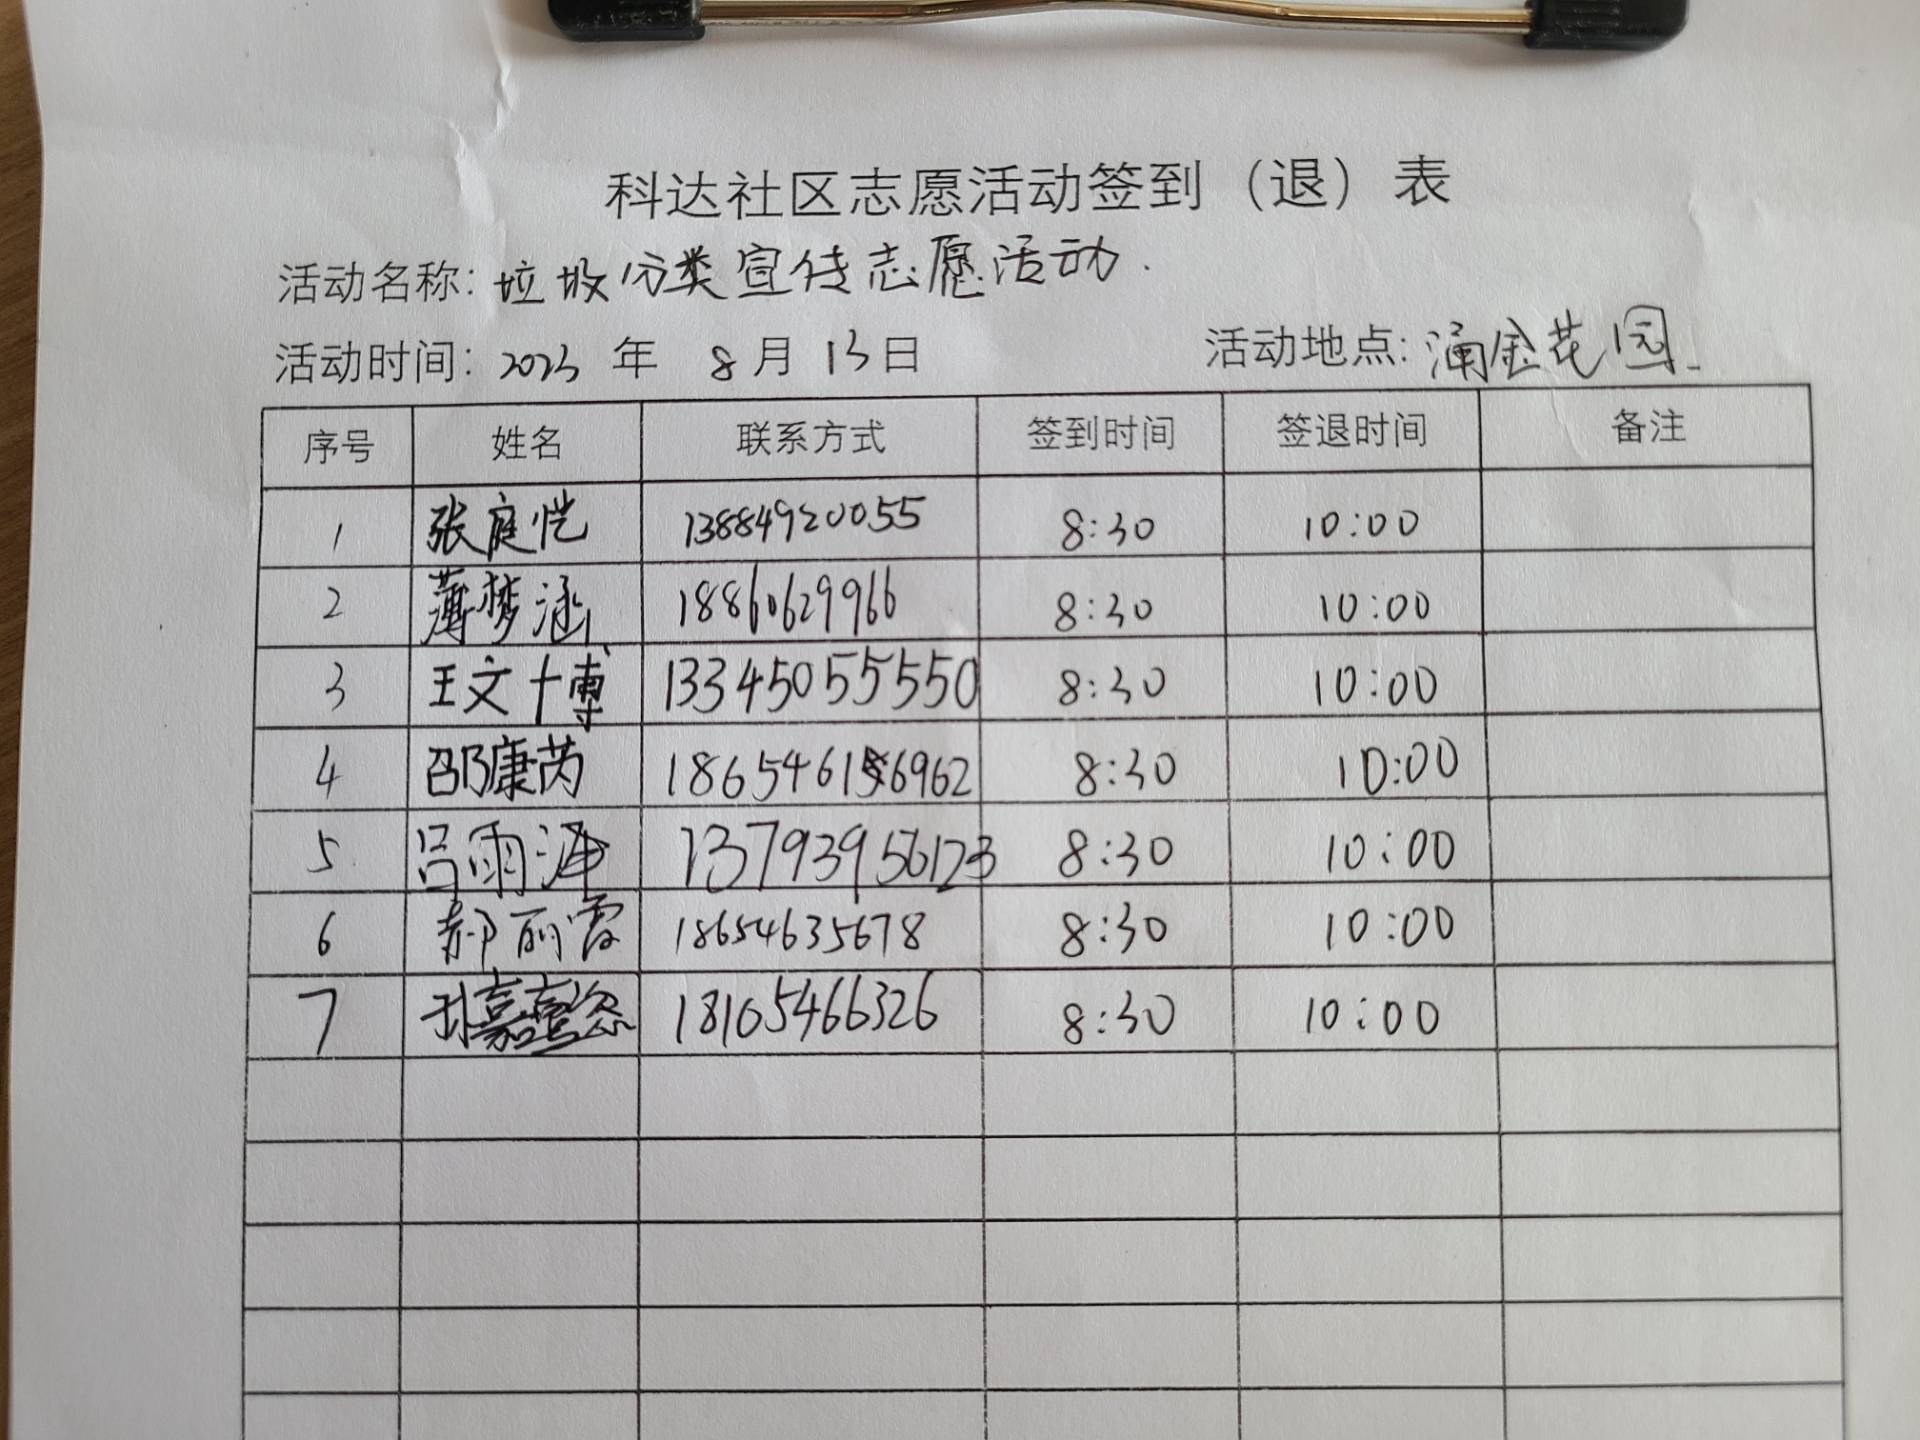 科达社区志愿活动签到（退）表
活动名称: 垃圾分类宣传志愿活动.
活动时间: 2023 年 8月 13日 活动地点: 涌金花园
序号 姓名 联系方式 签到时间 签退时间 备注
1 张庭恺 13884920055 8:30 10:00
2 薄梦涵 18860629966 8:30 10:00
3 王文博 13345055550 8:30 10:00
4 邵康芮 8:30 10:00
5 吕雨泽 13793956123 8:30 10:00
6 郝丽霞 18654635678 8:30 10:00
7 18105466326 8:30 10:00